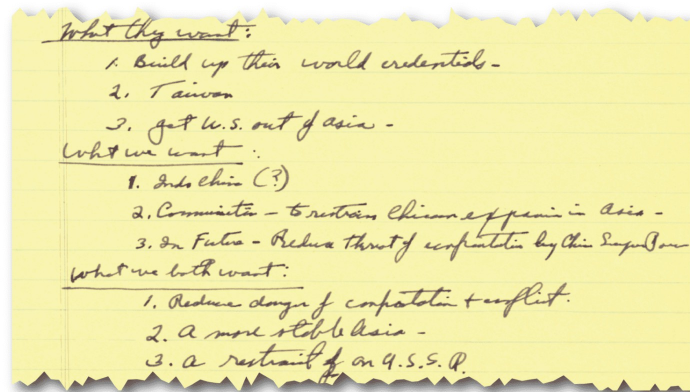 What they want:
1. Build up their world credentials -
2. Taiwan
3. Get U.S. out of Asia -
What we want:
1. Indo China (?)
2. Communists - to restrain Chicom expansion in Asia -
3. In Future - Reduce threat of confrontation by China Super Power
What we both want:
1. Reduce danger of confrontation + conflict.
2. A more stable Asia -
3. A restraint of on U.S.S.R.